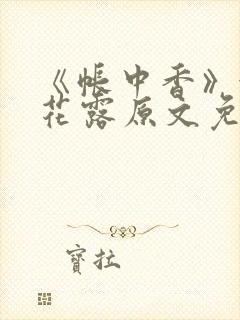 《帳中香》
花露原文免
寶拉